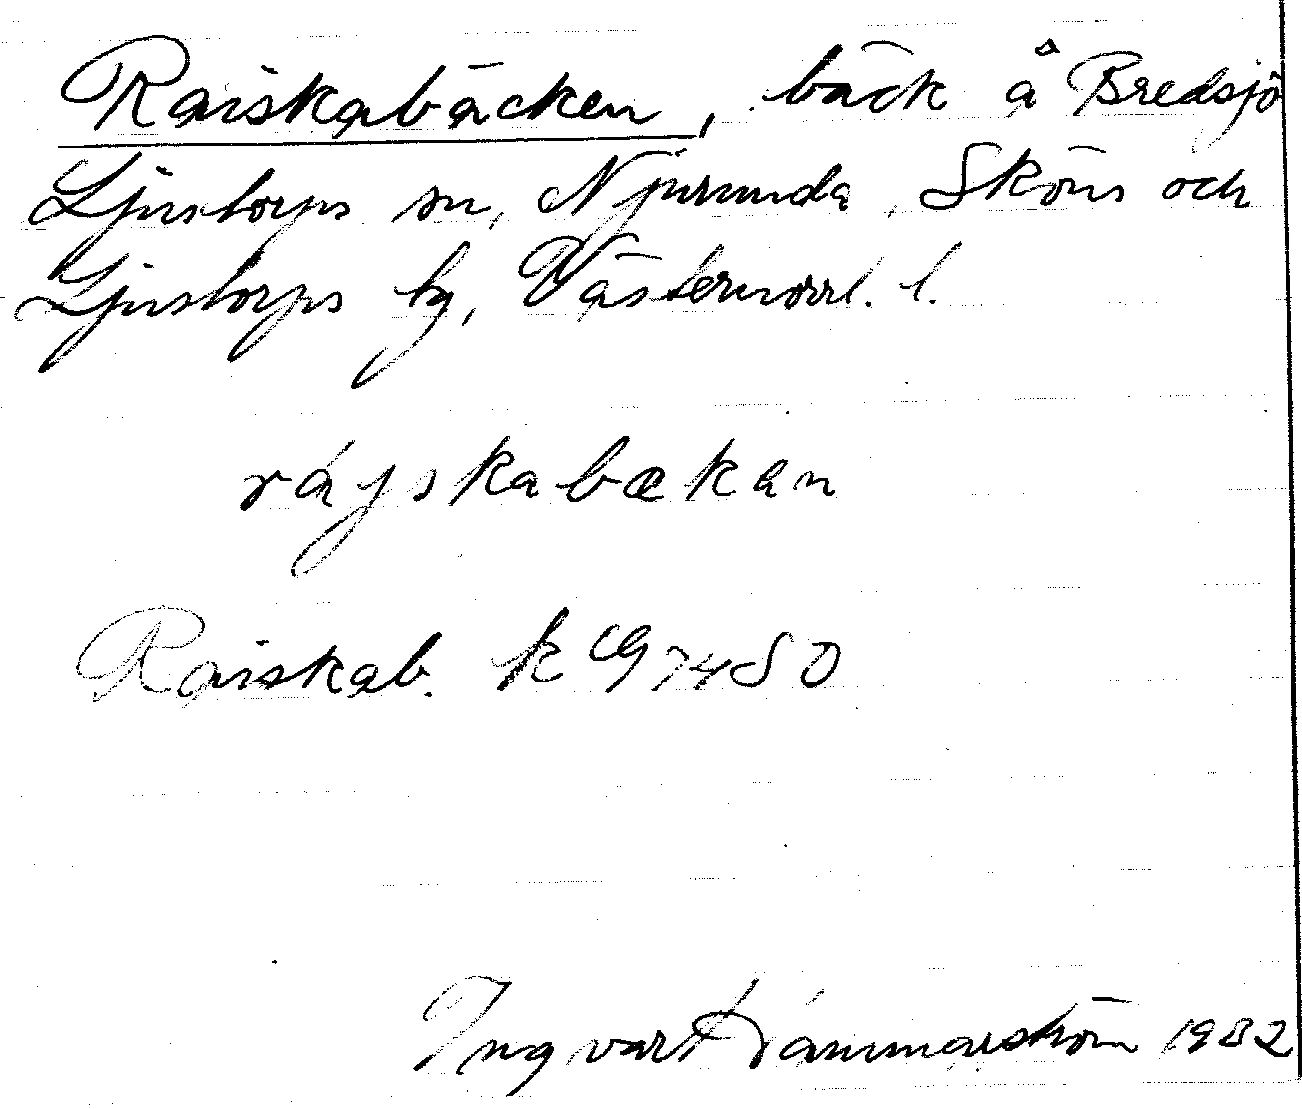 Raiskabäcken, bäck å Bredsjö
Ljustorps sn, Njurunda, Sköns och
Ljustorps tg, Västernorrl. l.
rájskabækan
Raiskab. k
Ingvar 1982